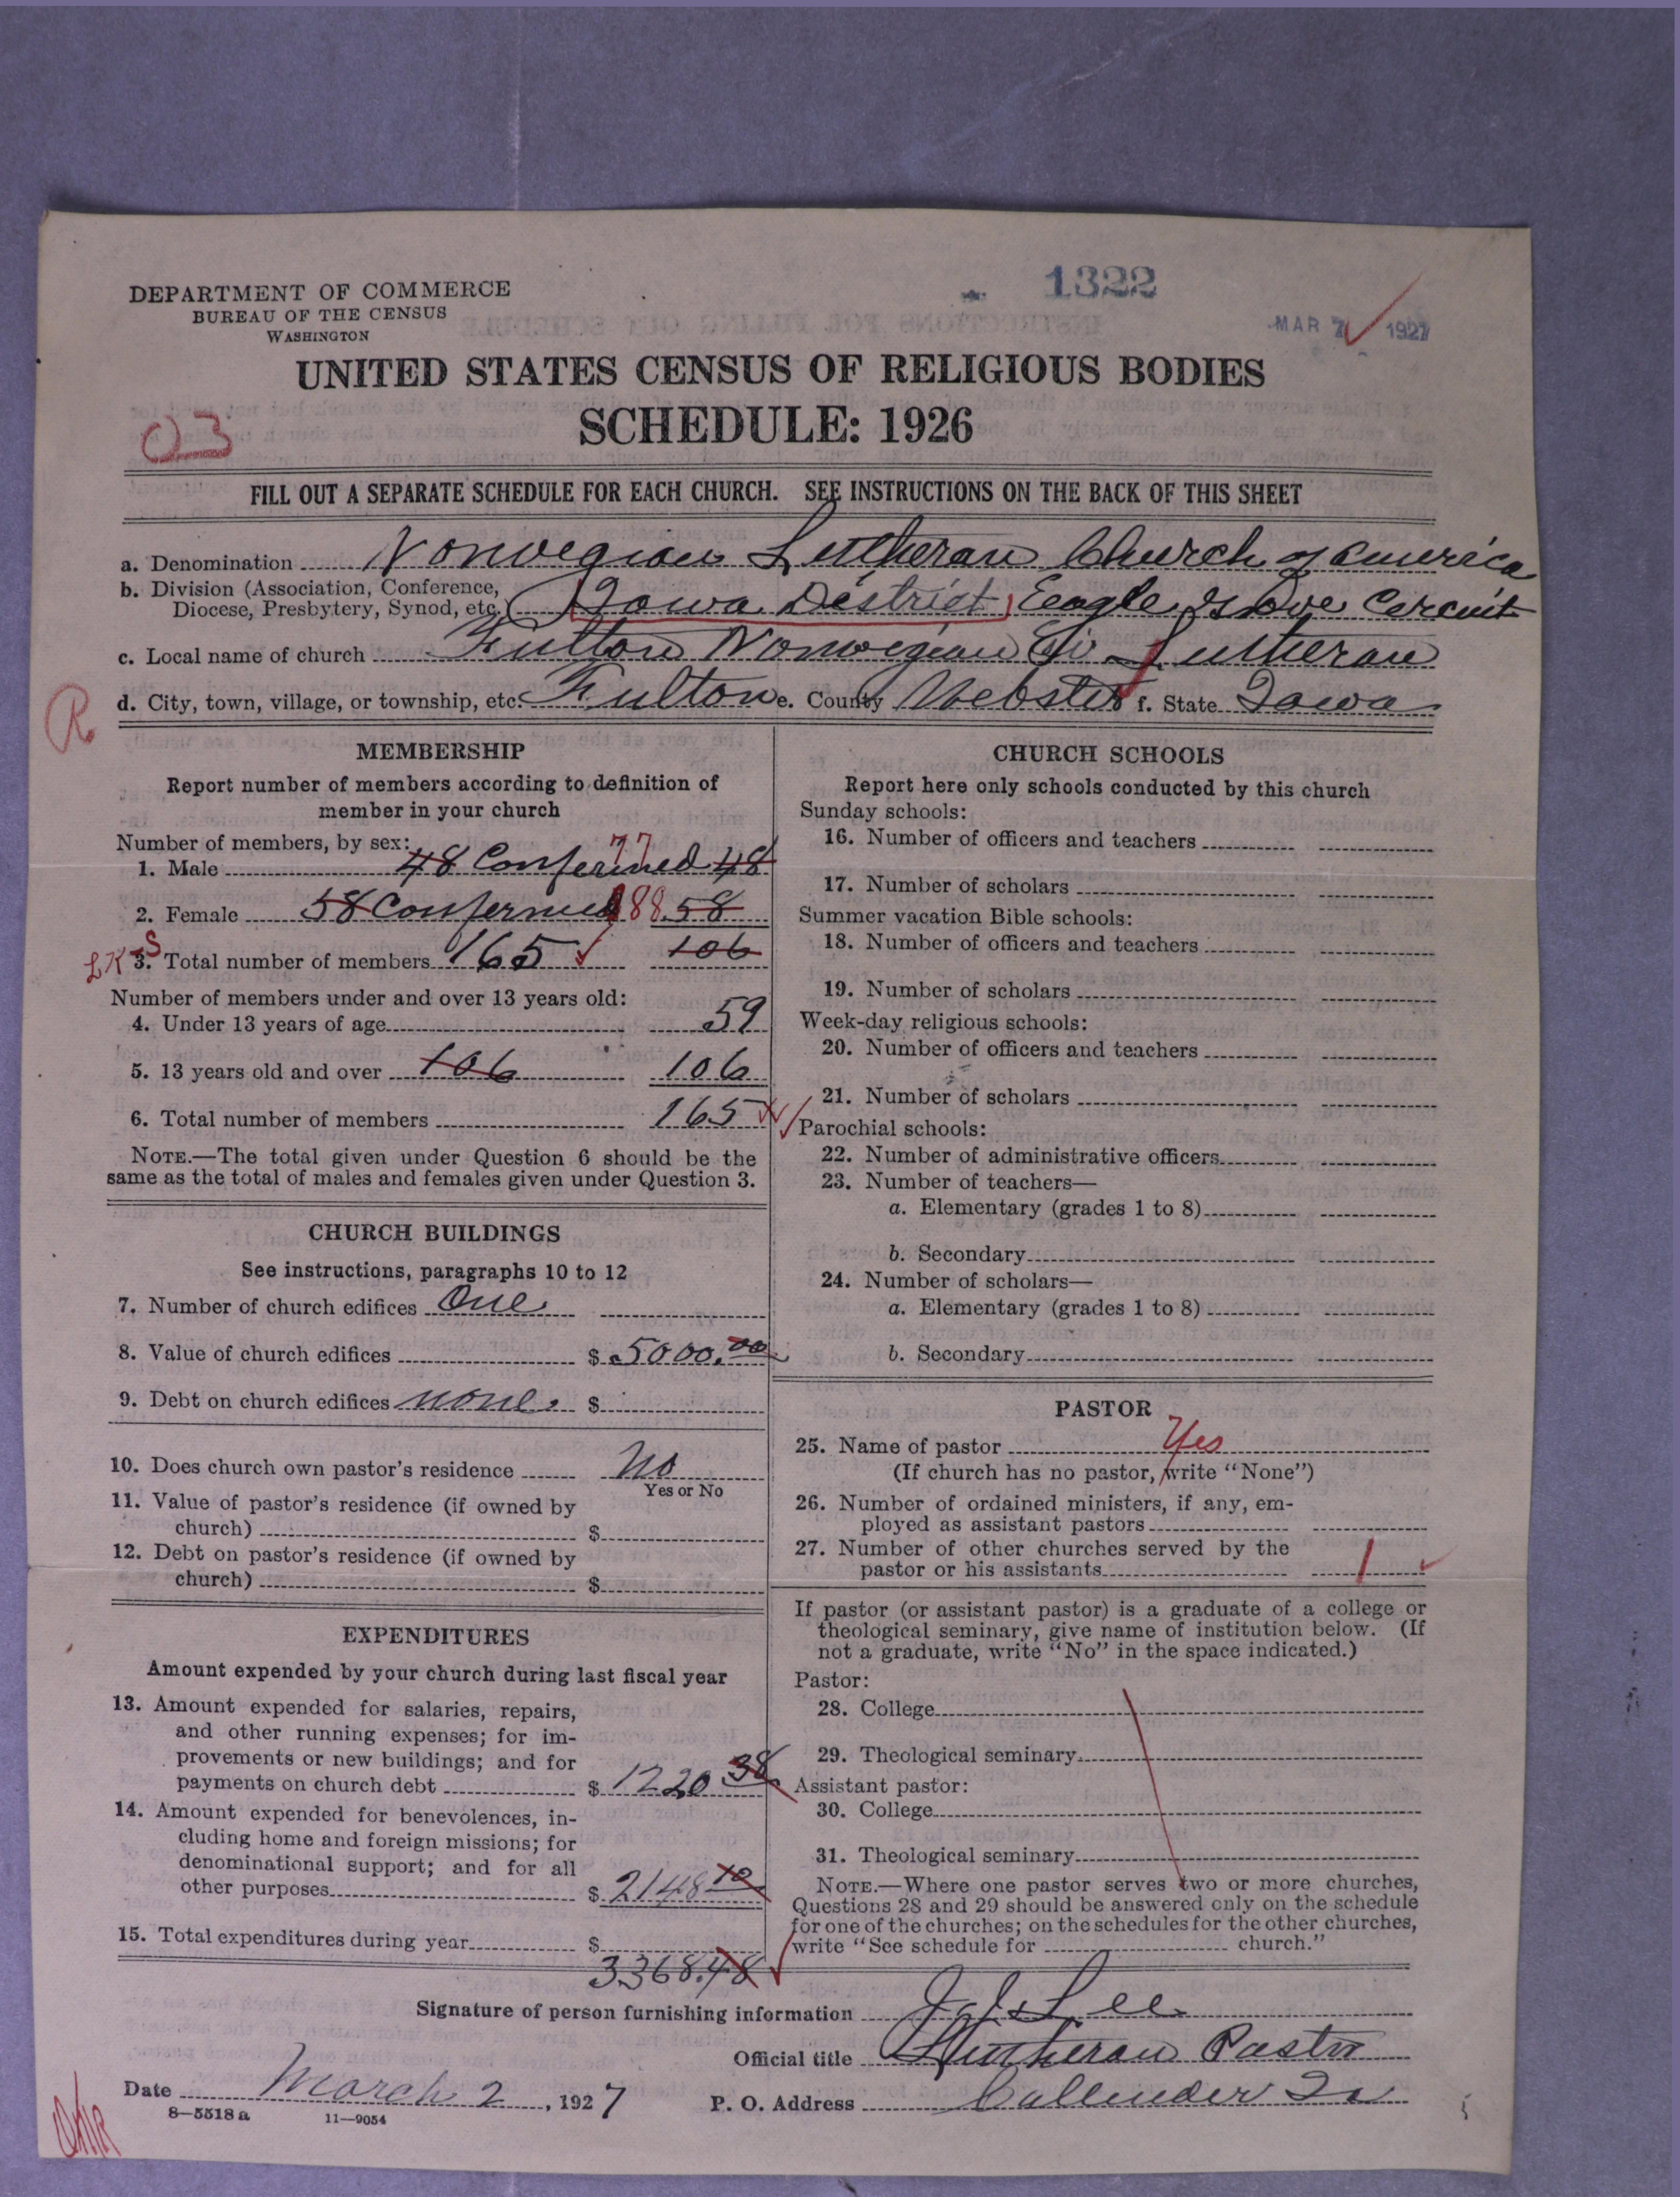 DEPARTMENT OF COMMERCE
BUREAU OF THE CENSUS
WASHINGTON
1322
MAR 7 1927
UNITED STATES CENSUS OF RELIGIOUS BODIES
SCHEDULE: 1926
03
FILL OUT A SEPARATE SCHEDULE FOR EACH CHURCH. SEE INSTRUCTIONS ON THE BACK OF THIS SHEET
a. Denomination Norwegian Lutheran Church of America
b. Division (Association, Conference,
Diocese, Presbytery, Synod, etc.) Iowa District, Eagle Grove Circuit
c. Local name of church Fulton Norwegian Ev Lutheran
R
d. City, town, village, or township, etc. Fulton e. County Webster f. State Iowa
MEMBERSHIP
Report number of members according to definition of
member in your church
Number of members, by sex:
1. Male 48 Confermed 77 48
2. Female 58 Confermed 88 58
3. Total number of members 165 106
Number of members under and over 13 years old:
4. Under 13 years of age 59
5. 13 years old and over 106 106
6. Total number of members 165
NOTE.—The total given under Question 6 should be the
same as the total of males and females given under Question 3.
CHURCH BUILDINGS
See instructions, paragraphs 10 to 12
7. Number of church edifices One
8. Value of church edifices $ 5000.00
9. Debt on church edifices none. $
10. Does church own pastor's residence No
Yes or No
11. Value of pastor's residence (if owned by
church) $
12. Debt on pastor's residence (if owned by
church) $
EXPENDITURES
Amount expended by your church during last fiscal year
13. Amount expended for salaries, repairs,
and other running expenses; for im-
provements or new buildings; and for
payments on church debt $ 1220 38
14. Amount expended for benevolences, in-
cluding home and foreign missions; for
denominational support; and for all
other purposes $ 2148 10
15. Total expenditures during year $
3368.48
CHURCH SCHOOLS
Report here only schools conducted by this church
Sunday schools:
16. Number of officers and teachers
17. Number of scholars
Summer vacation Bible schools:
18. Number of officers and teachers
19. Number of scholars
Week-day religious schools:
20. Number of officers and teachers
21. Number of scholars
Parochial schools:
22. Number of administrative officers
23. Number of teachers—
a. Elementary (grades 1 to 8)
b. Secondary
24. Number of scholars—
a. Elementary (grades 1 to 8)
b. Secondary
PASTOR
25. Name of pastor Yes
(If church has no pastor, write "None")
26. Number of ordained ministers, if any, em-
ployed as assistant pastors
27. Number of other churches served by the
pastor or his assistants 1
If pastor (or assistant pastor) is a graduate of a college or
theological seminary, give name of institution below. (If
not a graduate, write "No" in the space indicated.)
Pastor:
28. College
29. Theological seminary
Assistant pastor:
30. College
31. Theological seminary
NOTE.—Where one pastor serves two or more churches,
Questions 28 and 29 should be answered only on the schedule
for one of the churches; on the schedules for the other churches,
write "See schedule for church."
Signature of person furnishing information J. J. Lee
Official title Lutheran Pastor
Date March 2, 1927 P. O. Address Callender Ia
8—5518 a 11—9054